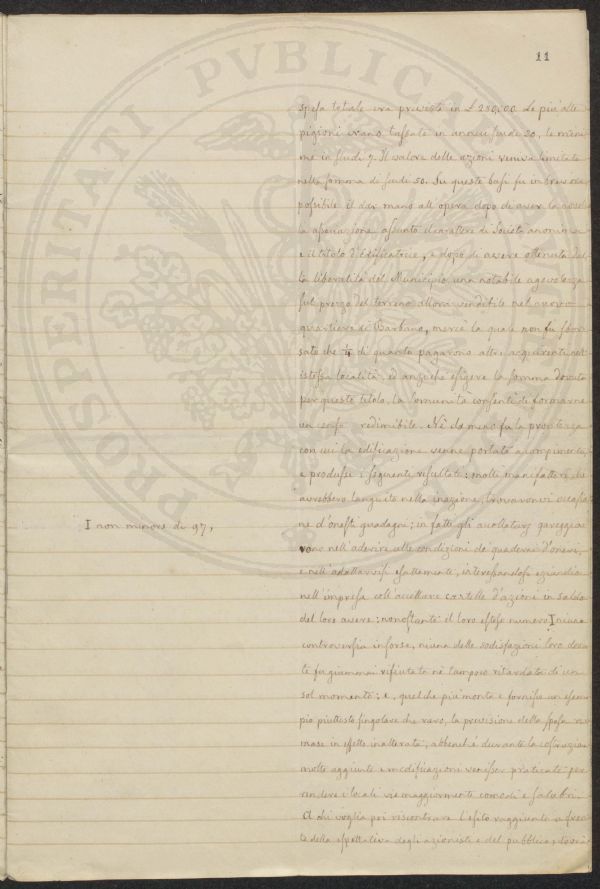 11
spesa totale era prevista in £ 280,000. Le più alte
pigioni erano tassate in annui scudi 30, le mini
me in scudi 7. Il valore delle azioni veniva limitato
nella somma di scudi 50. Su queste basi fu in breve ora
possibile il dar mano all'opera dopo di aver la novel
la associazione assunto il carattere di Società anonima
e il titolo d'Edificatrice, e dopo di avere ottenuta dal
la liberalità del Municipio una notabile agevolezza
sul prezzo del terreno allora vendibile nel nuovo
quartiere di Barbano, mercè la quale non fu sbor
sato che ¼ di quanto pagarono altri acquirenti nell'
istessa località, ed anzichè esigere la somma dovuta
per questo titolo, la Comunità consentì di formarne
un censo redimibile. Nè da meno fu la prontezza
con cui la edificazione venne portata a compimento,
e produsse i seguenti resultati: molti manifattori che
avrebbero languito nella inazione, trovaronvi occasio
ne d'onesti guadagni; in fatti gli accollatarj gareggia
rono nell'aderire alle condizioni de' quaderni d'oneri,
I non minore di 97,
e nell'adattarvisi esattamente, interessandosi eziandio
nell'impresa coll'accettare cartelle d'azioni in saldo
del loro avere; nonostante il loro esteso numero I niuna
controversia insorse, niuna delle sodisfazioni loro dovu
te fu giammai rifiutata nè tampoco ritardata di un
sol momento; e, quel che più monta e fornisce un esem
pio piuttosto singolare che raro, la previsione della spesa ri
mase in effetto inalterata, abbenchè durante la costruzione
molte aggiunte e modificazioni venisser praticate per
rendere i locali viemaggiormente comodi e salubri.
A chi voglia poi riscontrare l'esito raggiunto a fron
te della espettativa degli azionisti e del pubblico, dovrà
PROSPERITATI PVBLICAE